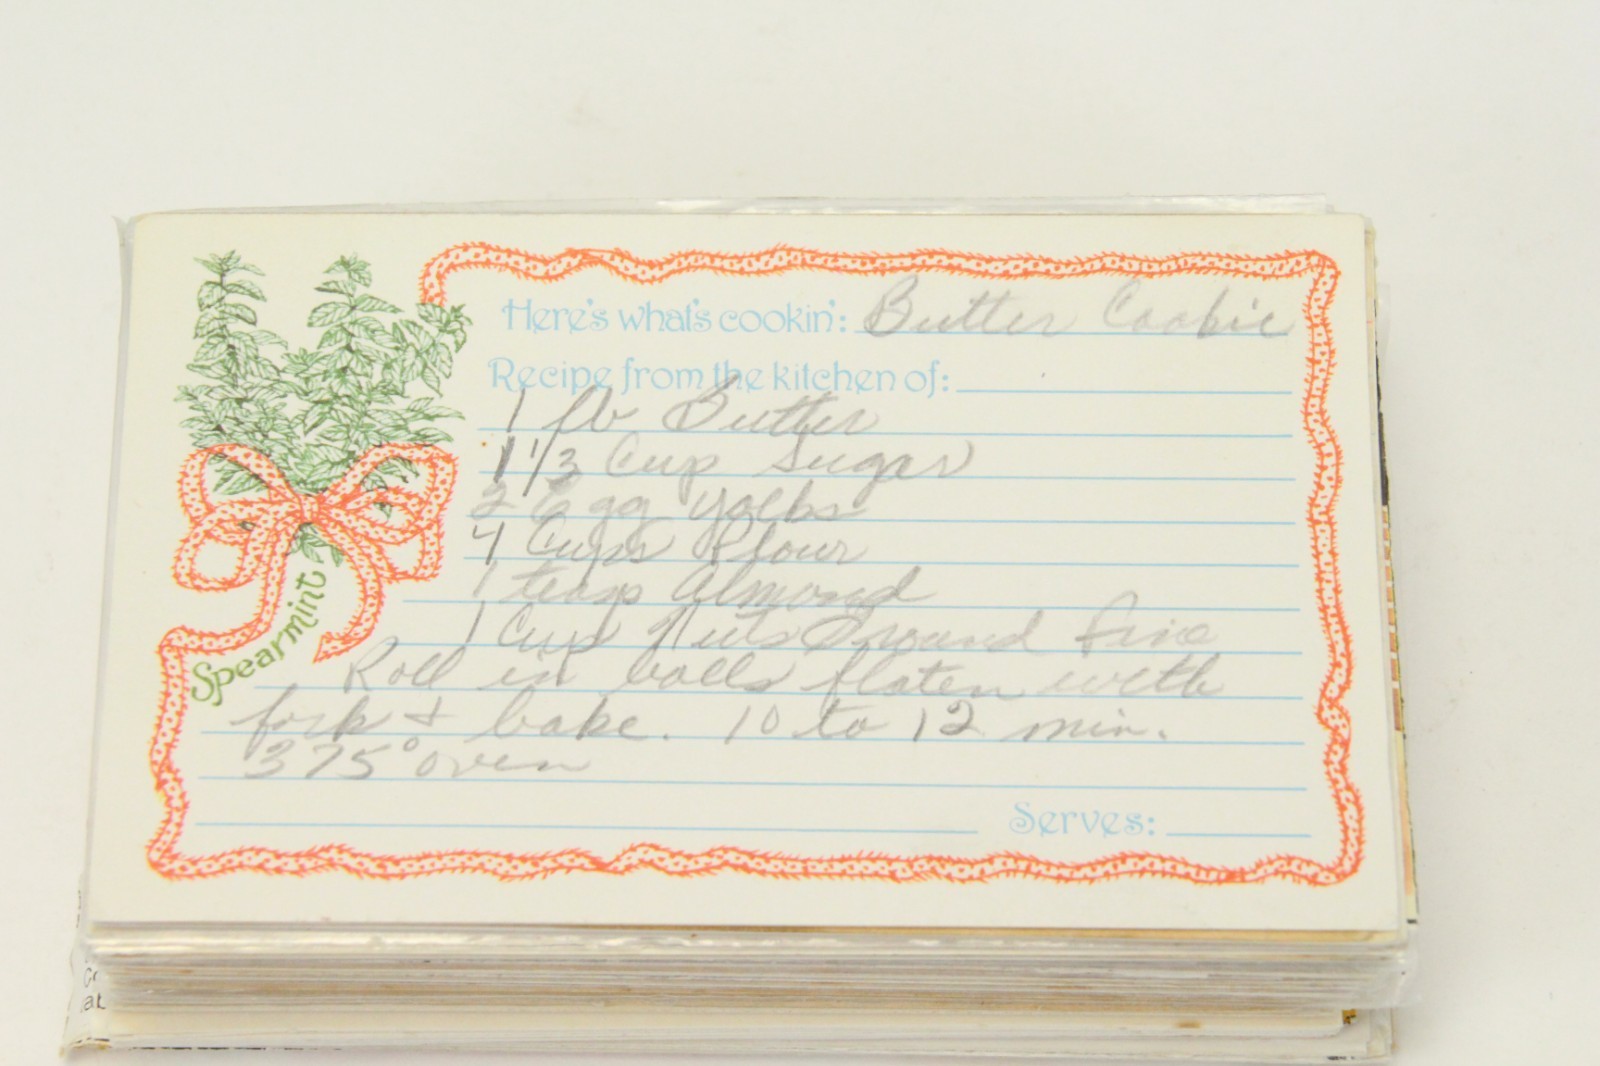 Here's what's cookin': Butter Cookie
Recipe from the kitchen of:
1 lb Butter
1 1/3 Cup Sugar
2 Egg yolks
4 Cups Flour
1 teasp almond
1 Cup Nuts Ground fine
Roll in balls flaten with
fork & bake. 10 to 12 min.
375° oven
Serves:
Spearmint